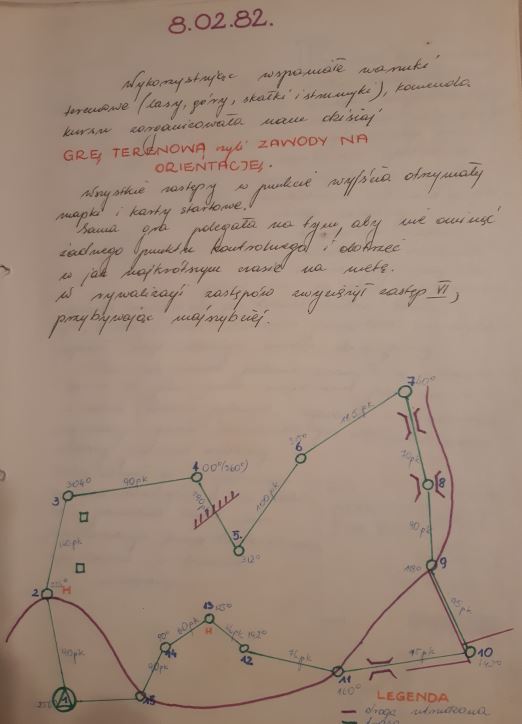 8.02.82.
Wykorzystując wspaniałe warunki
terenowe (lasy, góry, skałki i strumyki), komenda
kursu zorganizowała nam dzisiaj
GRĘ TERENOWĄ czyli ZAWODY NA
ORIENTACJĘ.
Wszystkie zastępy w punkcie wyjścia otrzymały
mapki i karty startowe.
Sama gra polegała na tym, aby nie ominąć
żadnego punktu kontrolnego i dotrzeć
w jak najkrótszym czasie na metę.
W rywalizacji zastępów zwyciężył zastęp VI,
przybywając najszybciej.
7
115 pk
6
70 pk
4 00°(360°)
304° 90 pk
8
3
100 pk
90 pk
5.
312°
9
180°
2
H
95 pk
13
H
60 pk
142°
90°
14
12
76 pk
95 pk
10
142°
90 pk
90 pk
11
160°
1
15
LEGENDA
droga utwardzona